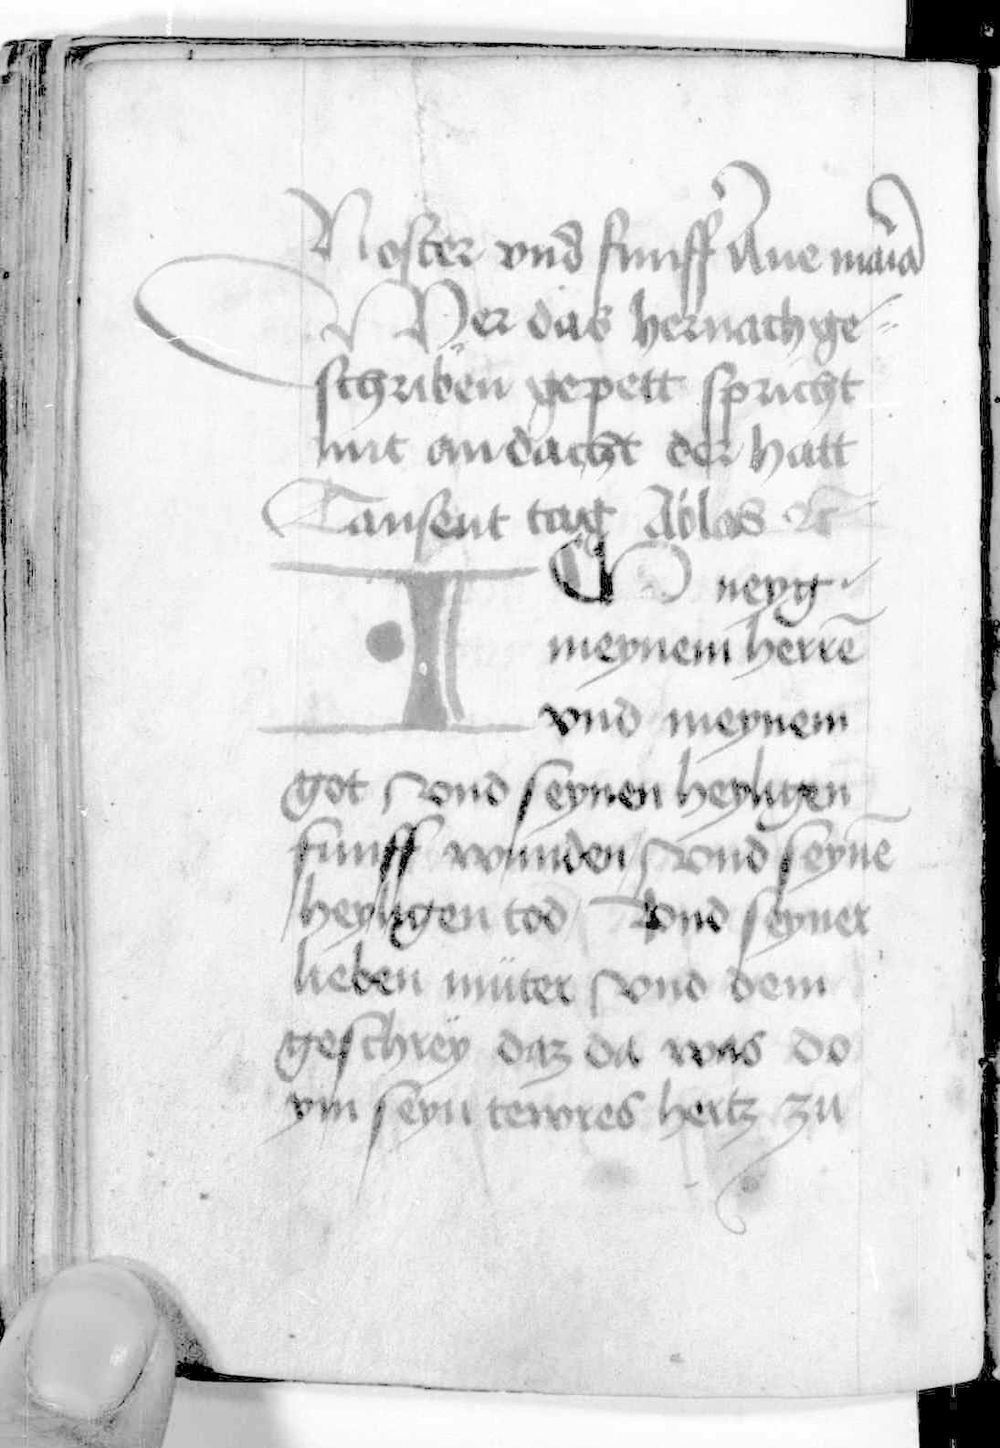 Noster vnd funff Aue maria
Wer das hernach ge=
schriben gepett spricht
mit andacht der hatt
Tausent tag Ablas ꝛc̄
ICh neyg
meynem herrē
vnd meynem
got vnd seynen heyligen
funff wunden / vnd seynē
heyligen tod / Vnd seyner
lieben müter vnd dem
geschrëy daz da was do
ym seyn tewres hertz zu